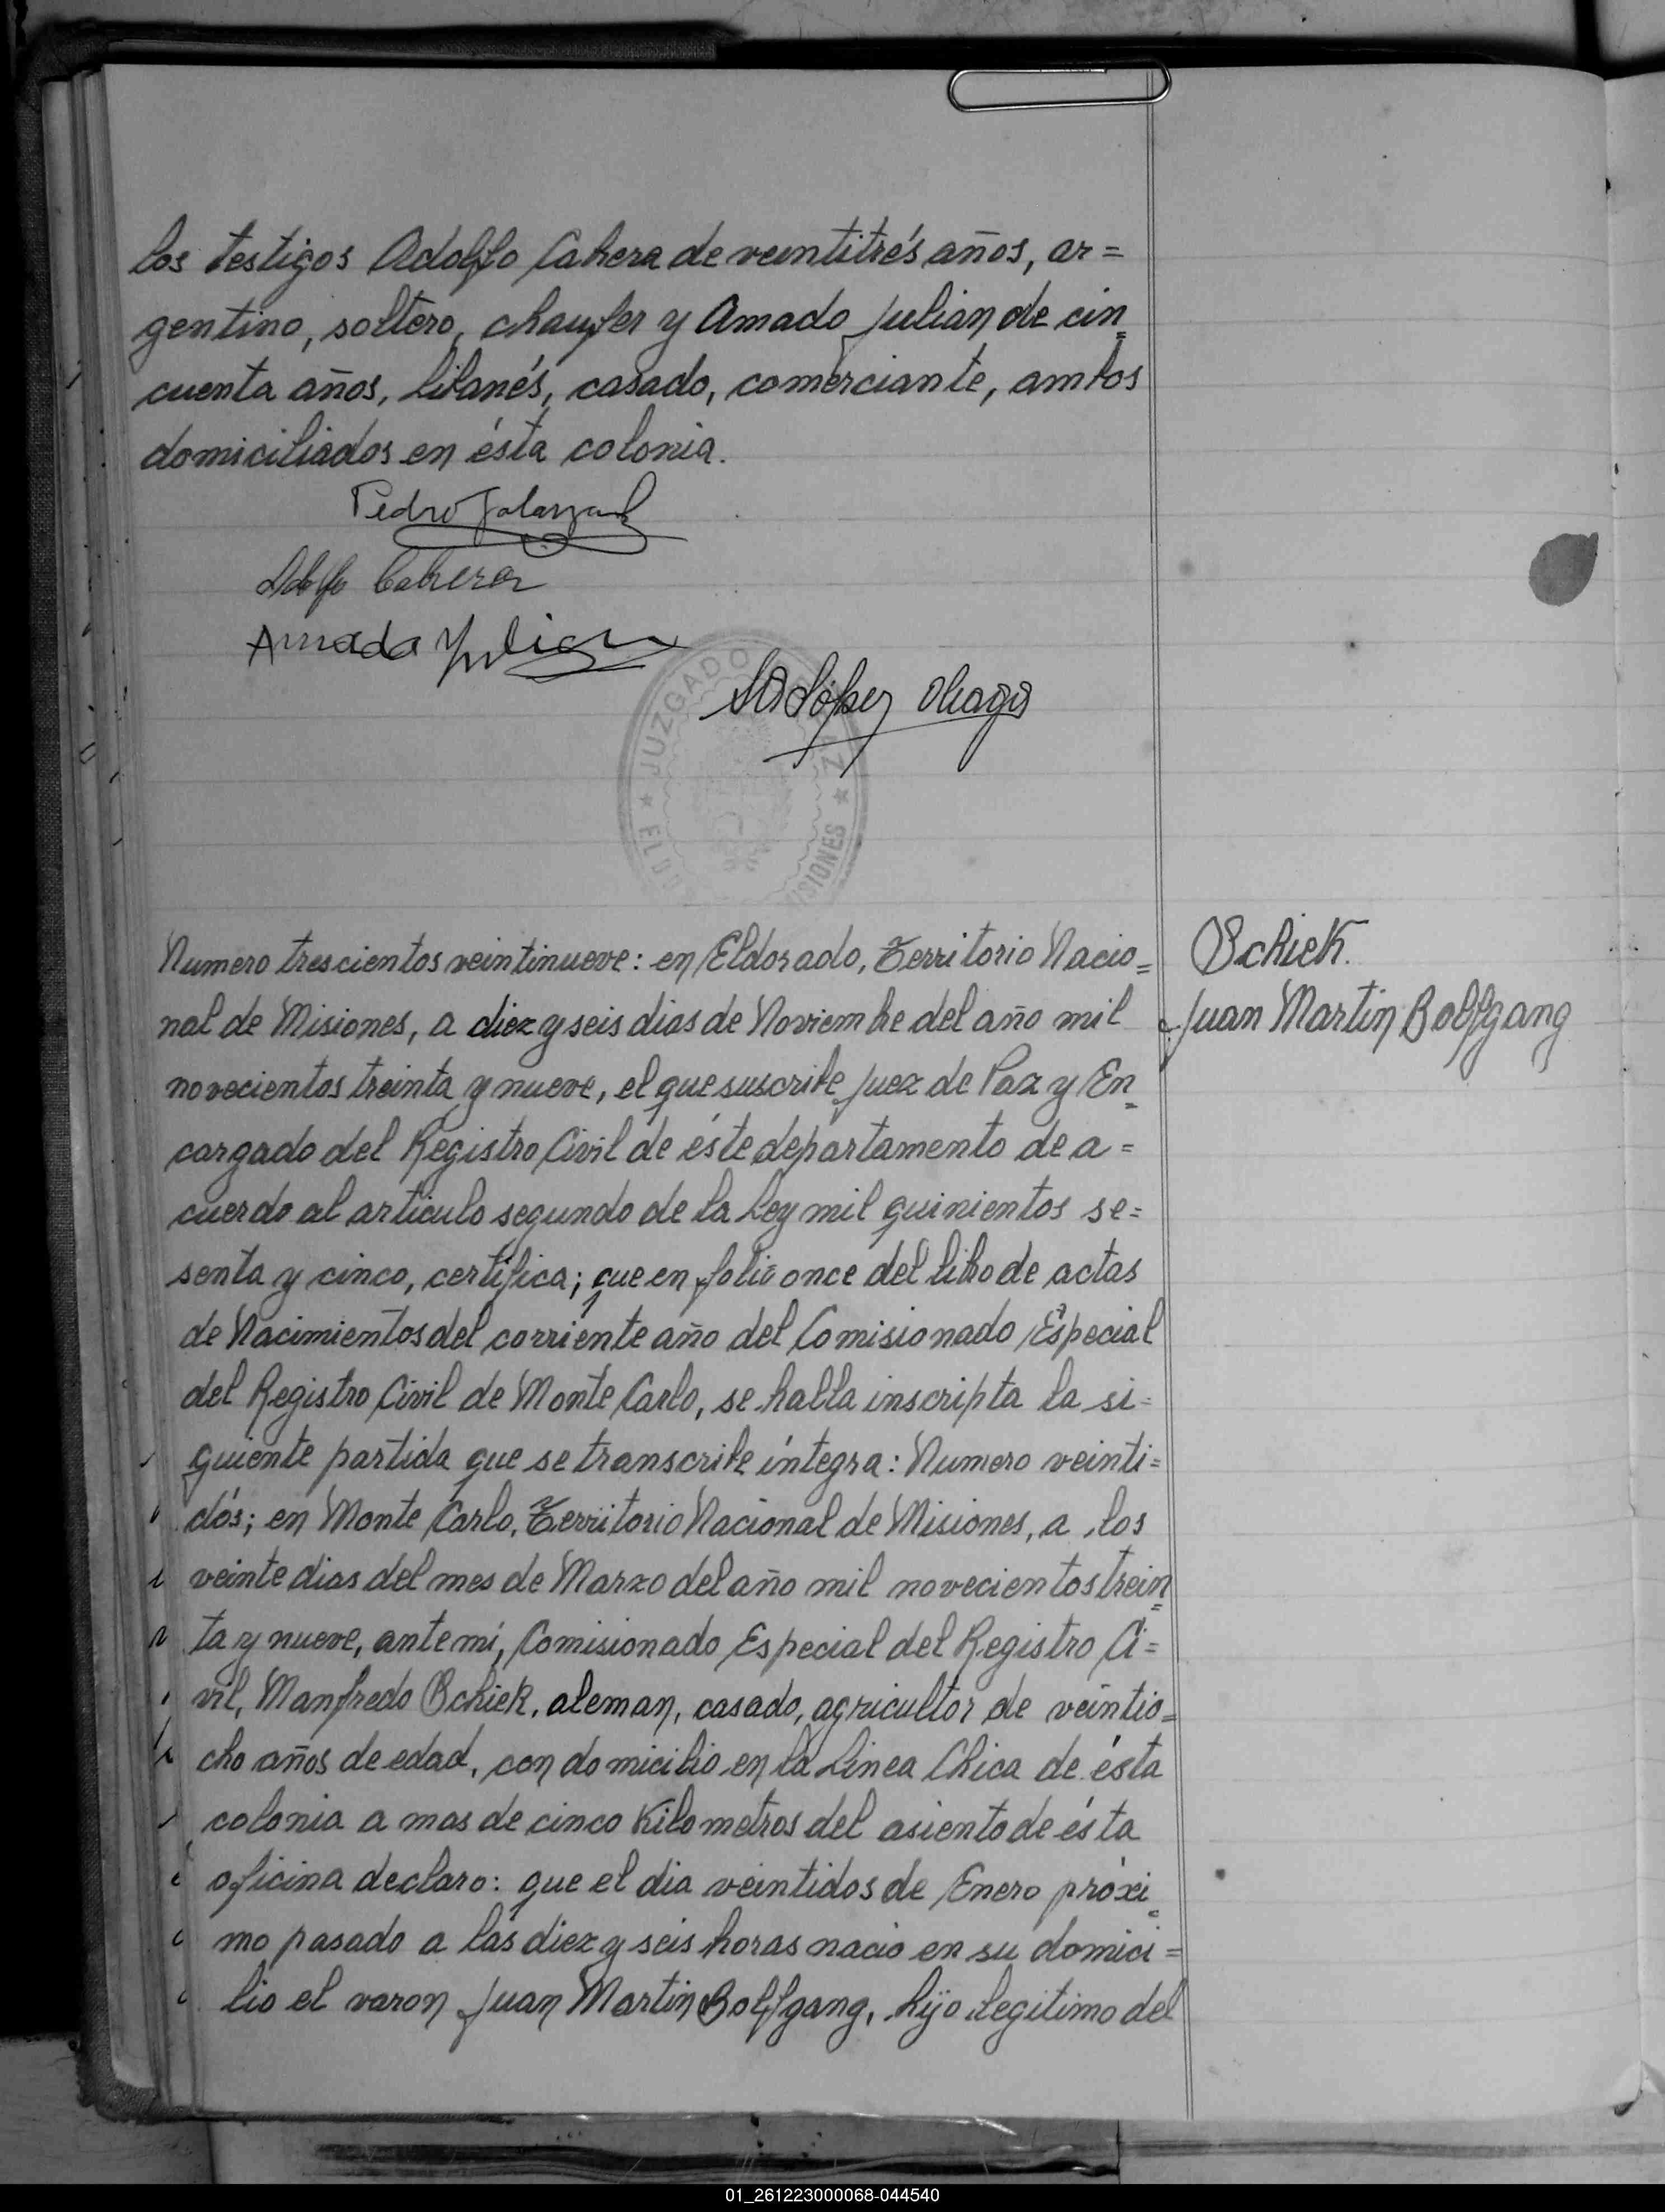 los testigos Adolfo Cabrera de veintitrés años, ar=
gentino, soltero, chaufer y Amado Julian de cin=
cuenta años, libanés, casado, comerciante, ambos
domiciliados en ésta colonia.
Pedro
Adolfo Cabrera
Amado Julian
López
JUZGADO
ELD
SIONES
Numero trescientos veintinueve: en Eldorado, Territorio Nacio=
nal de Misiones, a diez y seis dias de Noviembre del año mil
novecientos treinta y nueve, el que suscribe Juez de Paz y En=
cargado del Registro Civil de éste departamento de a=
cuerdo al articulo segundo de la Ley mil quinientos se=
senta y cinco, certifica; que en folio once del libro de actas
de Nacimientos del corriente año del Comisionado Especial
del Registro Civil de Monte Carlo, se halla inscripta la si=
guiente partida que se transcribe íntegra: Numero veinti=
dós; en Monte Carlo, Territorio Nacional de Misiones, a los
veinte dias del mes de Marzo del año mil novecientos trein=
ta y nueve, ante mí, Comisionado Especial del Registro Ci=
vil, Manfredo Schiek, aleman, casado, agricultor de veintio=
cho años de edad, con domicilio en la Linea Chica de ésta
colonia a mas de cinco Kilometros del asiento de ésta
oficina declaro: que el dia veintidos de Enero próxi=
mo pasado a las diez y seis horas nacio en su domici=
lio el varon Juan Martin Bolfgang, hijo legitimo del
Schiek.
Juan Martin Bolfgang
01_261223000068-044540